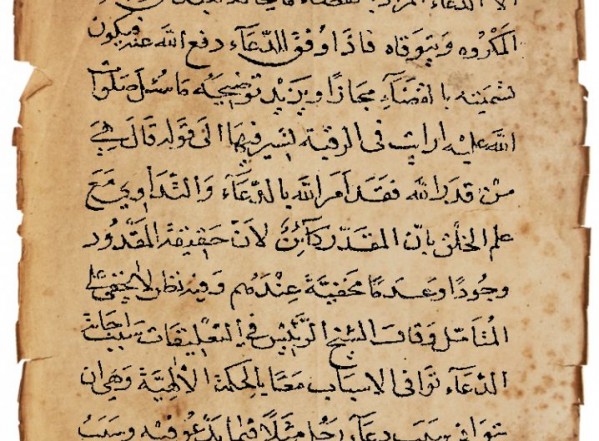 المكروه ويتوقاه فاذا وفق للدعاء دفع الله عنه فيكون
تسميته بالقضاء مجازا ويزيد توضيحه ما سئل صلوات
الله عليه ارايت في الرقية في قوله قال هي
من قدر الله فقد امر الله بالدعاء والتداوي مع
علم الخلق بان المقدر كائن لان حقيقة المقدور
وجودا وعدما مخفية عندهم وفيه نظر لا يخفى على
المتامل وقال الشيخ الرئيس في التعليقات سبب اجابة
الدعاء توافى الاسباب معا بالحكمة الالهية وهي ان
سبب دعاء رجل مثلا فيما يدعو فيه وسبب